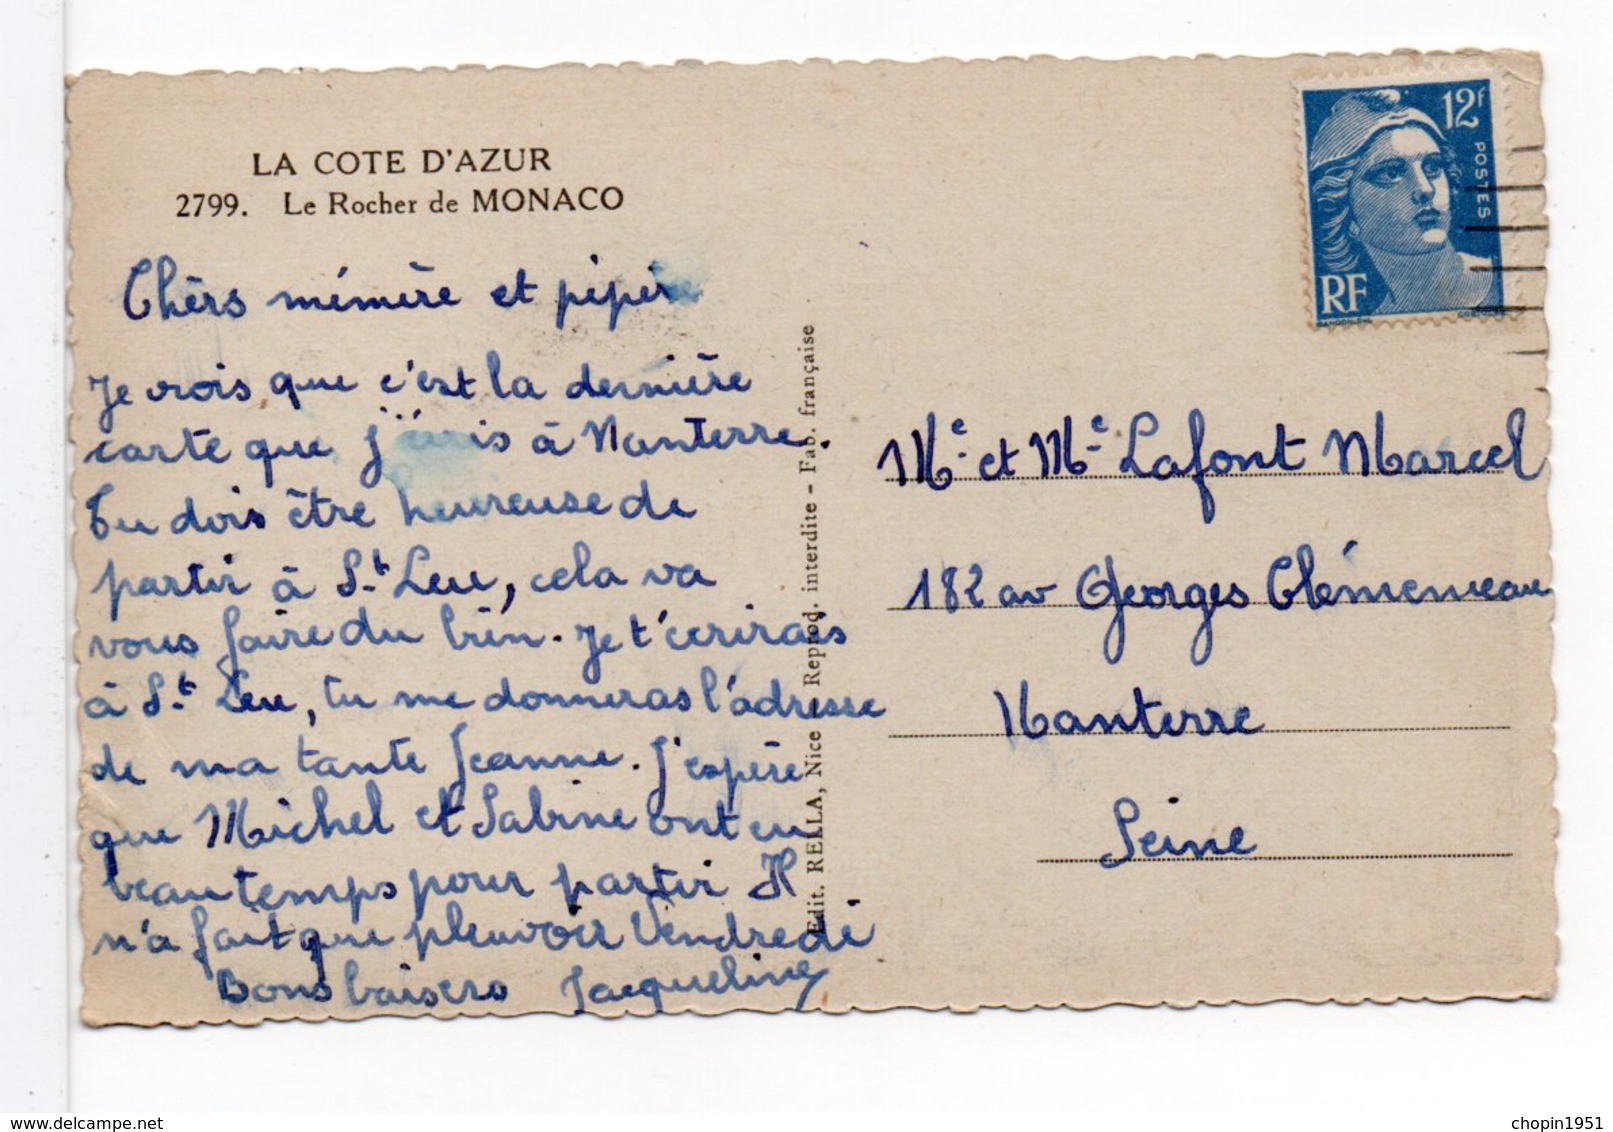 LA COTE D'AZUR
2799. Le Rocher de MONACO
Chèrs mémère et pépère
Je vrois que c'est la dernière
carte que j'écris à Nanterre.
Tu dois être heureuse de
partir à St Leu, cela va
vous faire du bien. Je t'écrirais
à St Leu, tu me donneras l'adresse
de ma tante Jeanne. J'espère
que Michel et Sabine ont eu
beau temps pour partir Il
n'a fait que pleuvoir Vendredi
Bons baisers Jacqueline
Edit. RELLA, Nice Reprod. interdite - Fab. française
12f
POSTES
RF
GANDON
Me et Me Lafont Marcel
182 av Georges Clémenceau
Nanterre
Seine
chopin1951